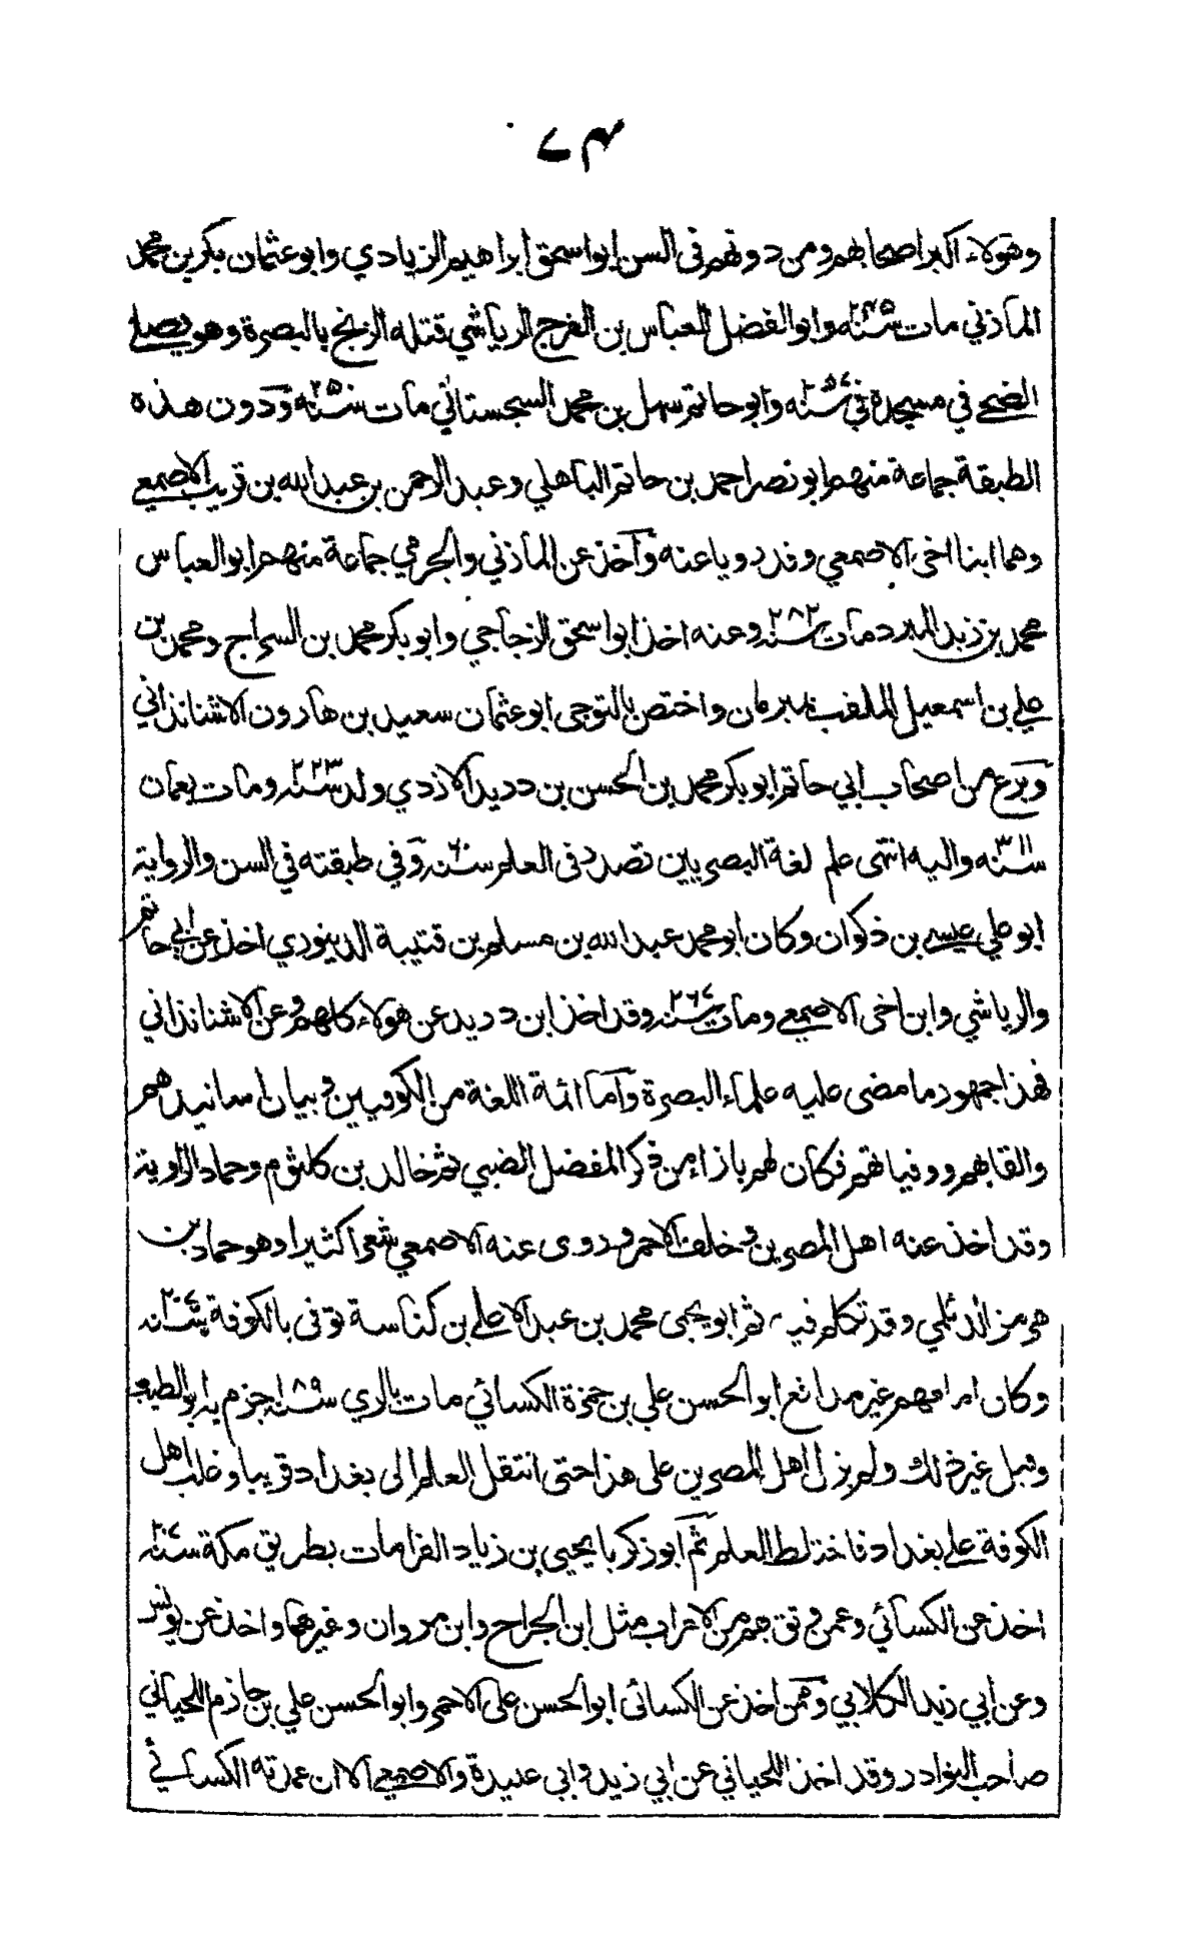 وهولاء اكبر اصحابهم ومن دونهم فى السن ابو اسحق ابراهيم الزيادي وابو عثمان بكر بن محمد
المازني مات سنة ٢٤٨ وابو الفضل العباس بن الفرج الرياشي قتله الزنج بالبصرة وهو يصلي
الضحى في مسجده في سنة ٢٥٧ وابو حاتم سهل بن محمد السجستاني مات سنة ٢٥٠ ودون هذه
الطبقة جماعة منهم ابو نصر احمد بن حاتم الباهلي وعبد الرحمن بن عبد الله بن قريب الاصمعي
وهما ابنا اخى الاصمعي وقد رويا عنه وآخذ عن المازني والجرمي جماعة منهم ابو العباس
محمد بن زيد المبرد مات سنة ٢٨٢ وعنه اخذ ابو اسحق الزجاجي وابو بكر محمد بن السراج ومحمد بن
علي بن اسمعيل الملقب بمبرمان واختص بالتوجى ابو عثمان سعيد بن هارون الاشنانذاني
وبرع من اصحاب ابي حاتم ابو بكر محمد بن الحسن بن دريد الازدي ولد سنة ٢٢٣ ومات بعمان
سنة ٣١١ واليه انتهى علم لغة البصريين تصدر فى العلم سنة ٦٠ وفي طبقته في السن والرواية
ابو علي عيسى بن ذكوان وكان ابو محمد عبد الله بن مسلم بن قتيبة الدينوري اخذ عن ابي حاتم
والرياشي وابن اخى الاصمعي ومات سنة ٢٦٧ وقد اخذ ابن دريد عن هولاء كلهم وعن الاشنانذاني
فهذا جمهور ما مضى عليه علماء البصرة وآما ائمة اللغة من الكوفيين وبيان اسانيدهم
والقابهم ووفياتهم فكان لهم بازاء من ذكر المفضل الضبي ثم خالد بن كلثوم وحماد الراوية
وقد اخذ عنه اهل المصرين وخلف الاحمر وروى عنه الاصمعي شعرا كثيرا وهو حماد بن
هرمز الديلمي وقد تكلم فيه ثم ابو يحيى محمد بن عبد الاعلى بن كناسة توفى بالكوفة سنة ٢٠٧
وكان امامهم غير مدافع ابو الحسن علي بن حمزة الكسائي مات بالري سنة ١٨٩ جزم به ابو الطيب
وقيل غير ذلك ولم يزل اهل المصرين على هذا حتى انتقل العلم الى بغداد قريبا وغلب اهل
الكوفة على بغداد فاختلط العلم ثم ابو زكريا يحيى بن زياد الفرا مات بطريق مكة سنة ٢٠٧
اخذ عن الكسائي وعمن وثق بهم من الاعراب مثل ابن الجراح وابن مروان وغيرهما واخذ عن يونس
وعن ابي زيد الكلابي وممن اخذ عن الكسائى ابو الحسن على الاحمر وابو الحسن علي بن حازم اللحياني
صاحب النوادر وقد اخذ اللحياني عن ابي زيد وابى عبيدة والاصمعي الا ان عمدته الكسائي